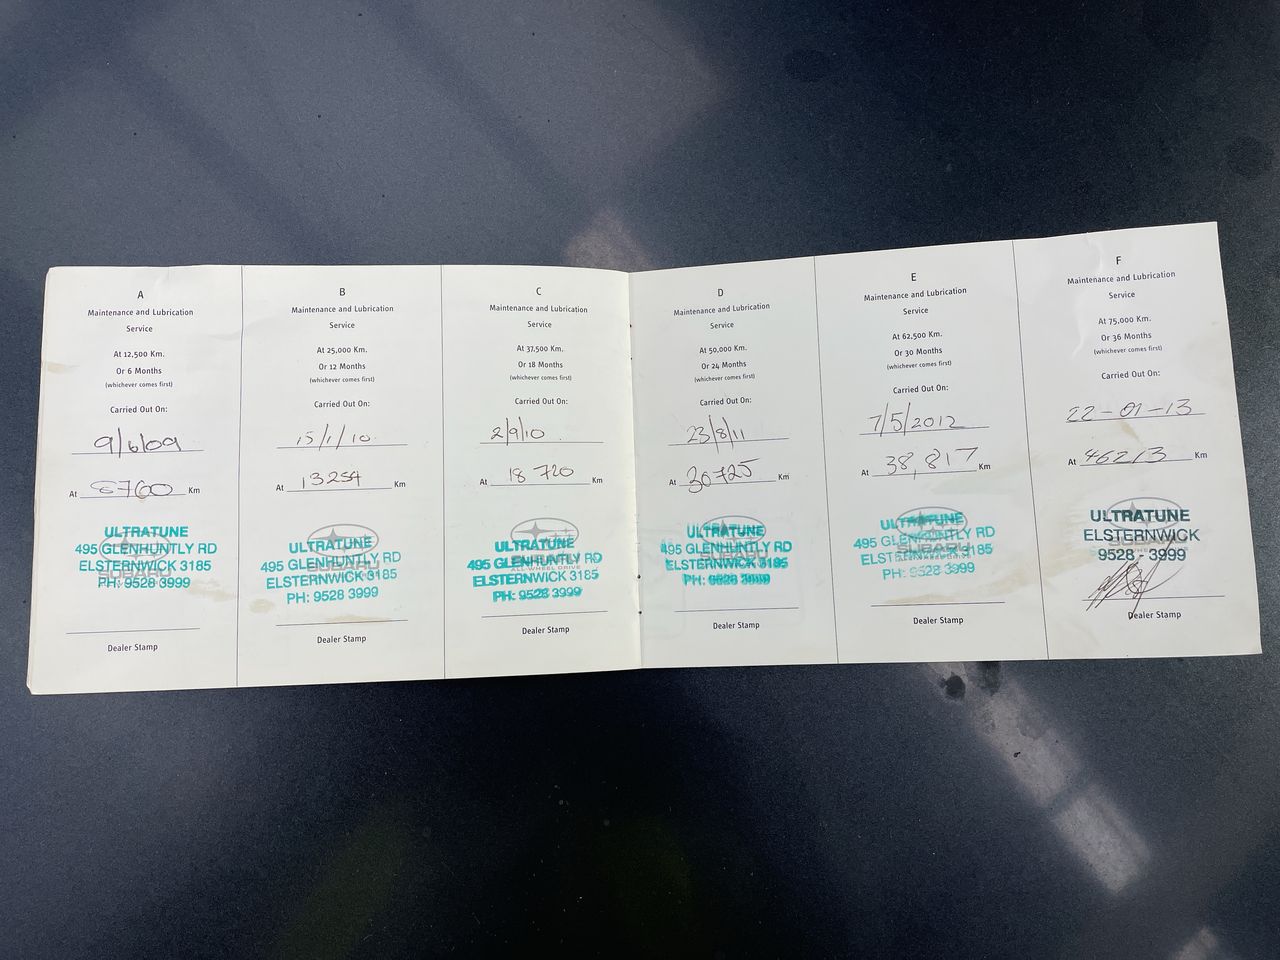 A
Maintenance and Lubrication
Service
At 12,500 Km.
Or 6 Months
(whichever comes first)
Carried Out On:
9/6/09
At 8760 Km
ULTRATUNE
495 GLENHUNTLY RD
ELSTERNWICK 3185
PH: 9528 3999
SUBARU
Dealer Stamp
B
Maintenance and Lubrication
Service
At 25,000 Km.
Or 12 Months
(whichever comes first)
Carried Out On:
15/1/10
At 13254 Km
ULTRATUNE
495 GLENHUNTLY RD
ELSTERNWICK 3185
PH: 9528 3999
SUBARU
Dealer Stamp
C
Maintenance and Lubrication
Service
At 37,500 Km.
Or 18 Months
(whichever comes first)
Carried Out On:
2/9/10
At 18 720 Km
ULTRATUNE
495 GLENHUNTLY RD
ELSTERNWICK 3185
PH: 9528 3999
ALL-WHEEL DRIVE
Dealer Stamp
D
Maintenance and Lubrication
Service
At 50,000 Km.
Or 24 Months
(whichever comes first)
Carried Out On:
23/8/11
At 30725 Km
ULTRATUNE
495 GLENHUNTLY RD
ELSTERNWICK 3185
PH: 9528 3999
Dealer Stamp
E
Maintenance and Lubrication
Service
At 62,500 Km.
Or 30 Months
(whichever comes first)
Carried Out On:
7/5/2012
At 38,817 Km
ULTRATUNE
495 GLENHUNTLY RD
ELSTERNWICK 3185
PH: 9528 3999
SUBARU
Dealer Stamp
F
Maintenance and Lubrication
Service
At 75,000 Km.
Or 36 Months
(whichever comes first)
Carried Out On:
22-01-13
At 46213 Km
ULTRATUNE
ELSTERNWICK
9528 - 3999
SUBARU
Dealer Stamp